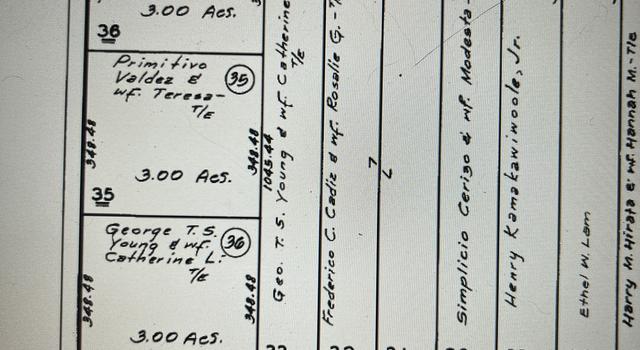 3.00 Acs.
36
Primitivo
Valdez &
wf. Teresa-
T/E
35
348.48
348.48
3.00 Acs.
35
George T. S.
Young & wf.
Catherine L.
T/E
36
348.48
348.48
3.00 Acs.
1045.44
Geo. T. S. Young & wf. Catherine
T/E
Frederico C. Cadiz & wf. Rosalie G.-
7
Simplicio Cerizo & wf. Modesta-
Henry Kamakawiwoole, Jr.
Ethel W. Lam
Harry M. Hirata & wf. Hannah M.-T/E